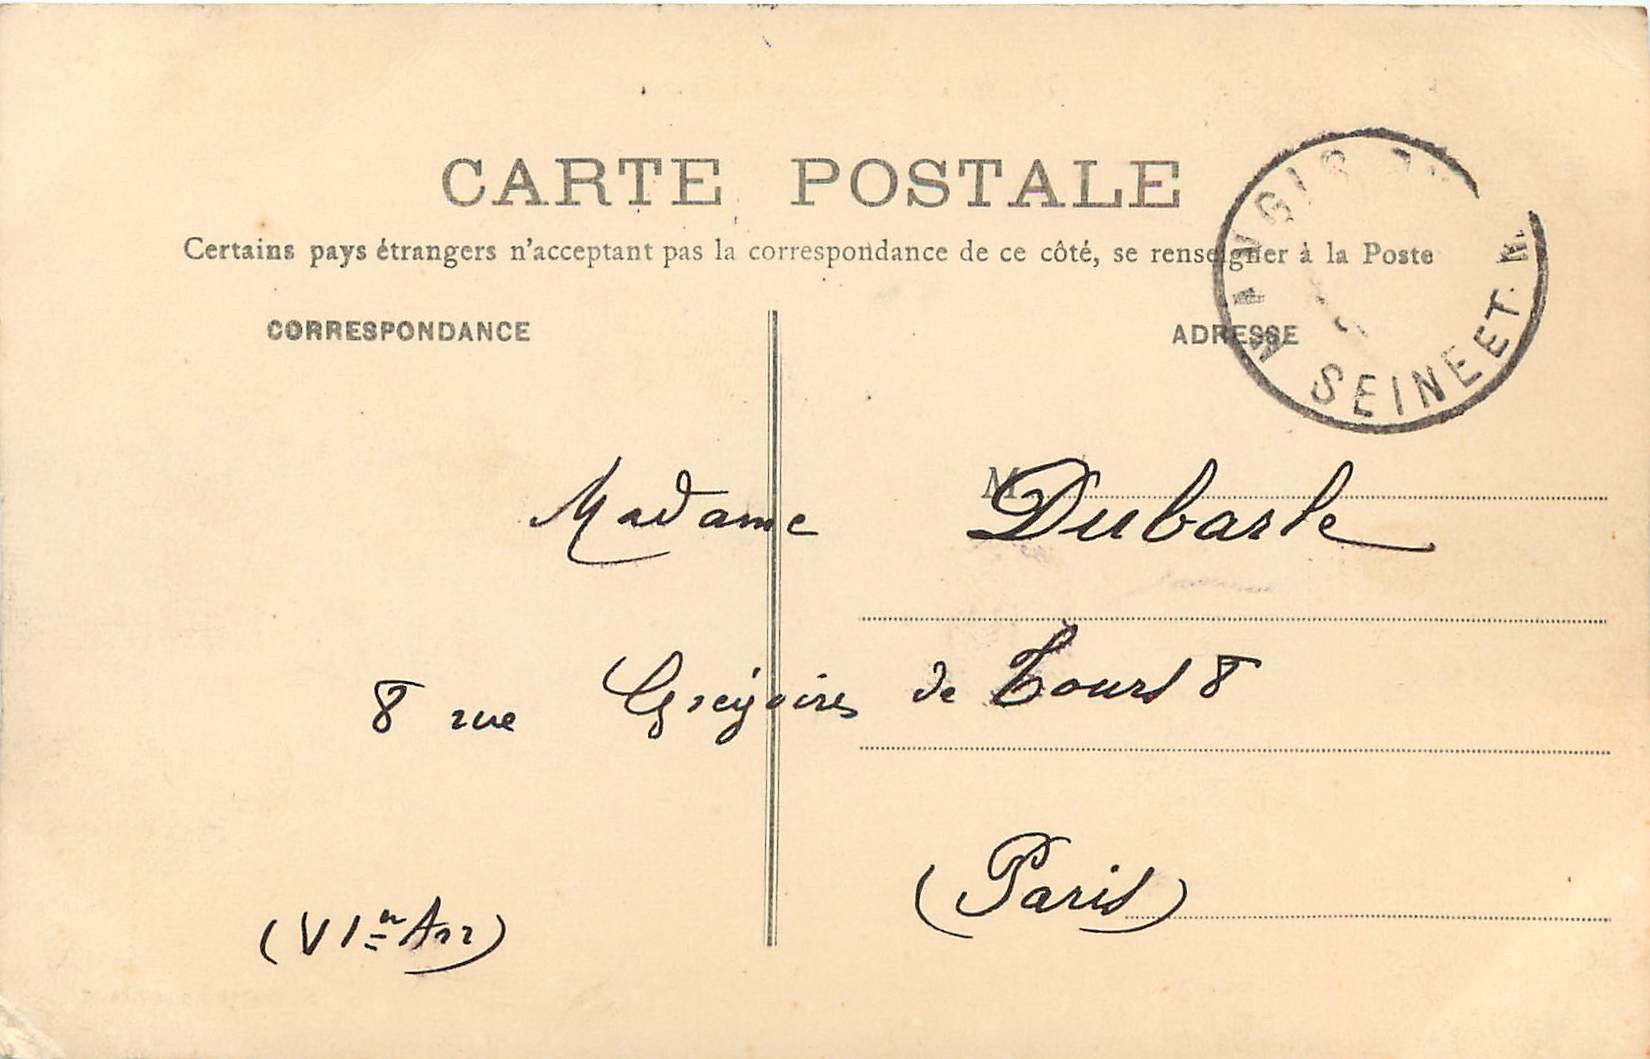 CARTE POSTALE
Certains pays étrangers n'acceptant pas la correspondance de ce côté, se renseigner à la Poste
CORRESPONDANCE
ADRESSE
SEINE ET M.
M
Madame Dubarle
8 rue Grégoires de Tours 8
(Paris)
(VIe Arr)